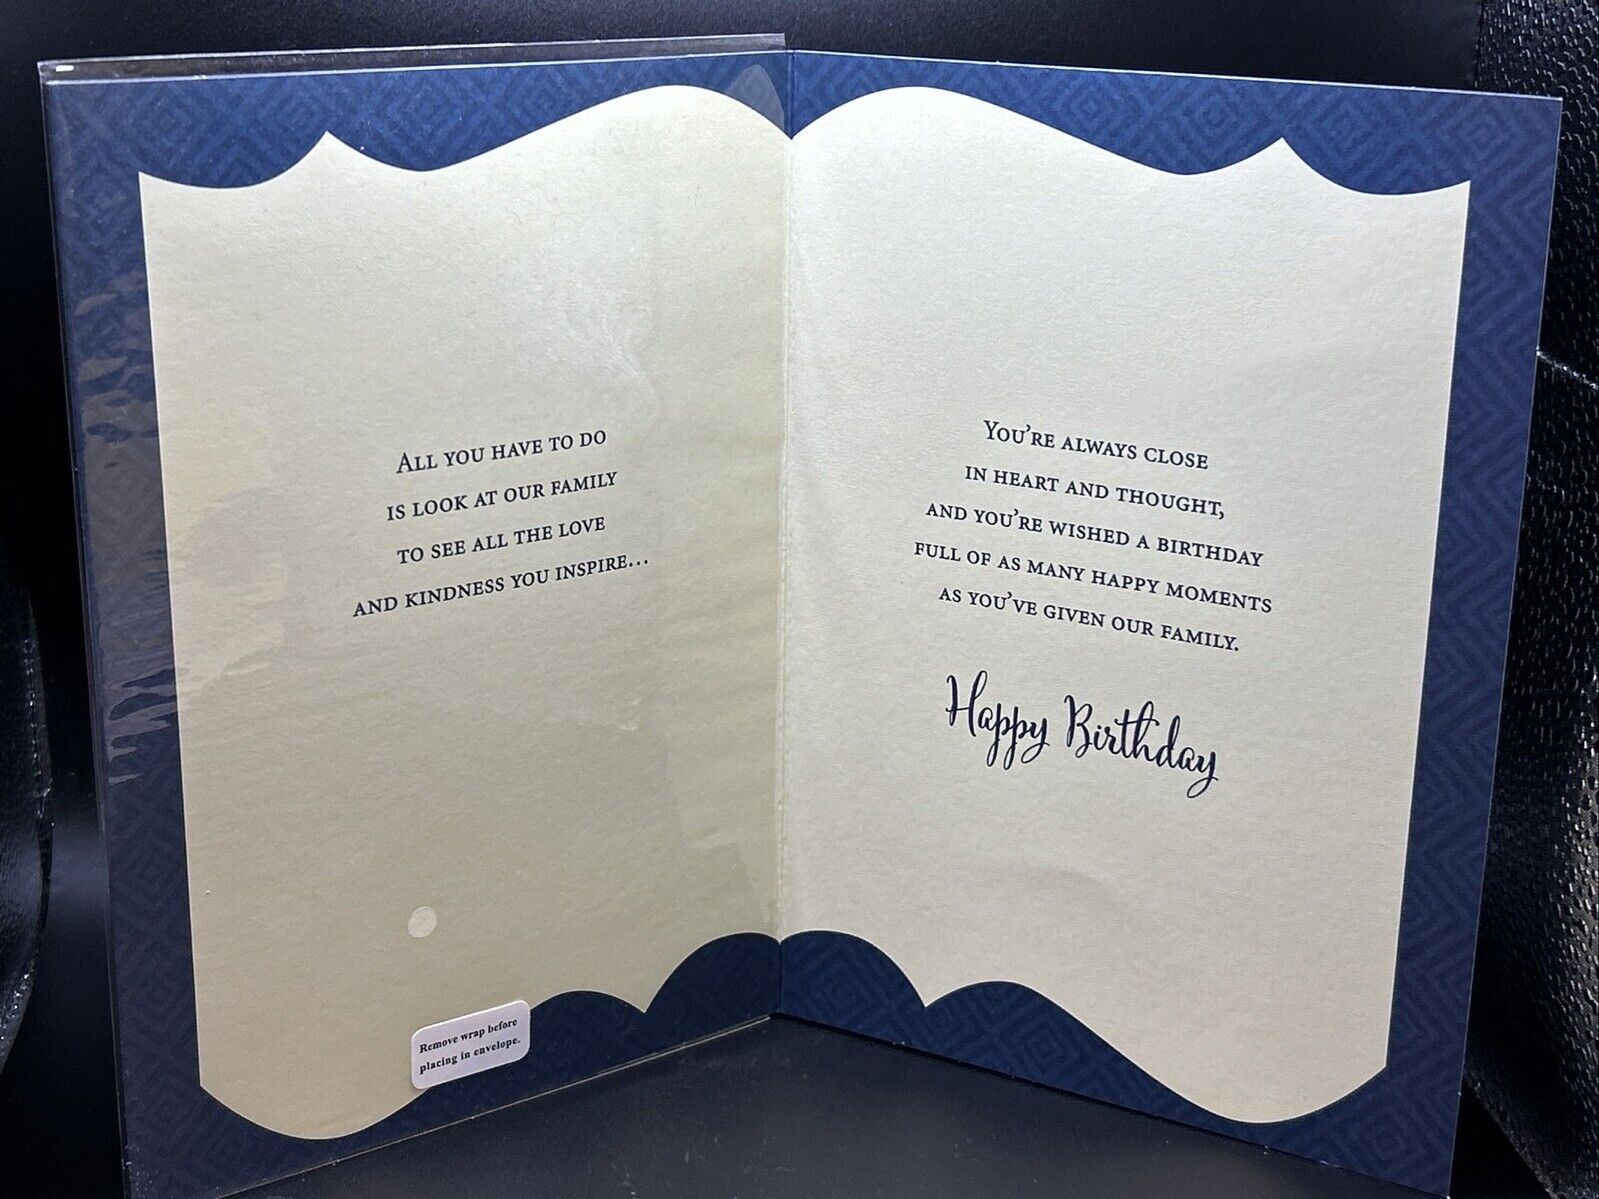 All you have to do
is look at our family
to see all the love
and kindness you inspire...
Remove wrap before
placing in envelope.
You're always close
in heart and thought,
and you're wished a birthday
full of as many happy moments
as you've given our family.
Happy Birthday